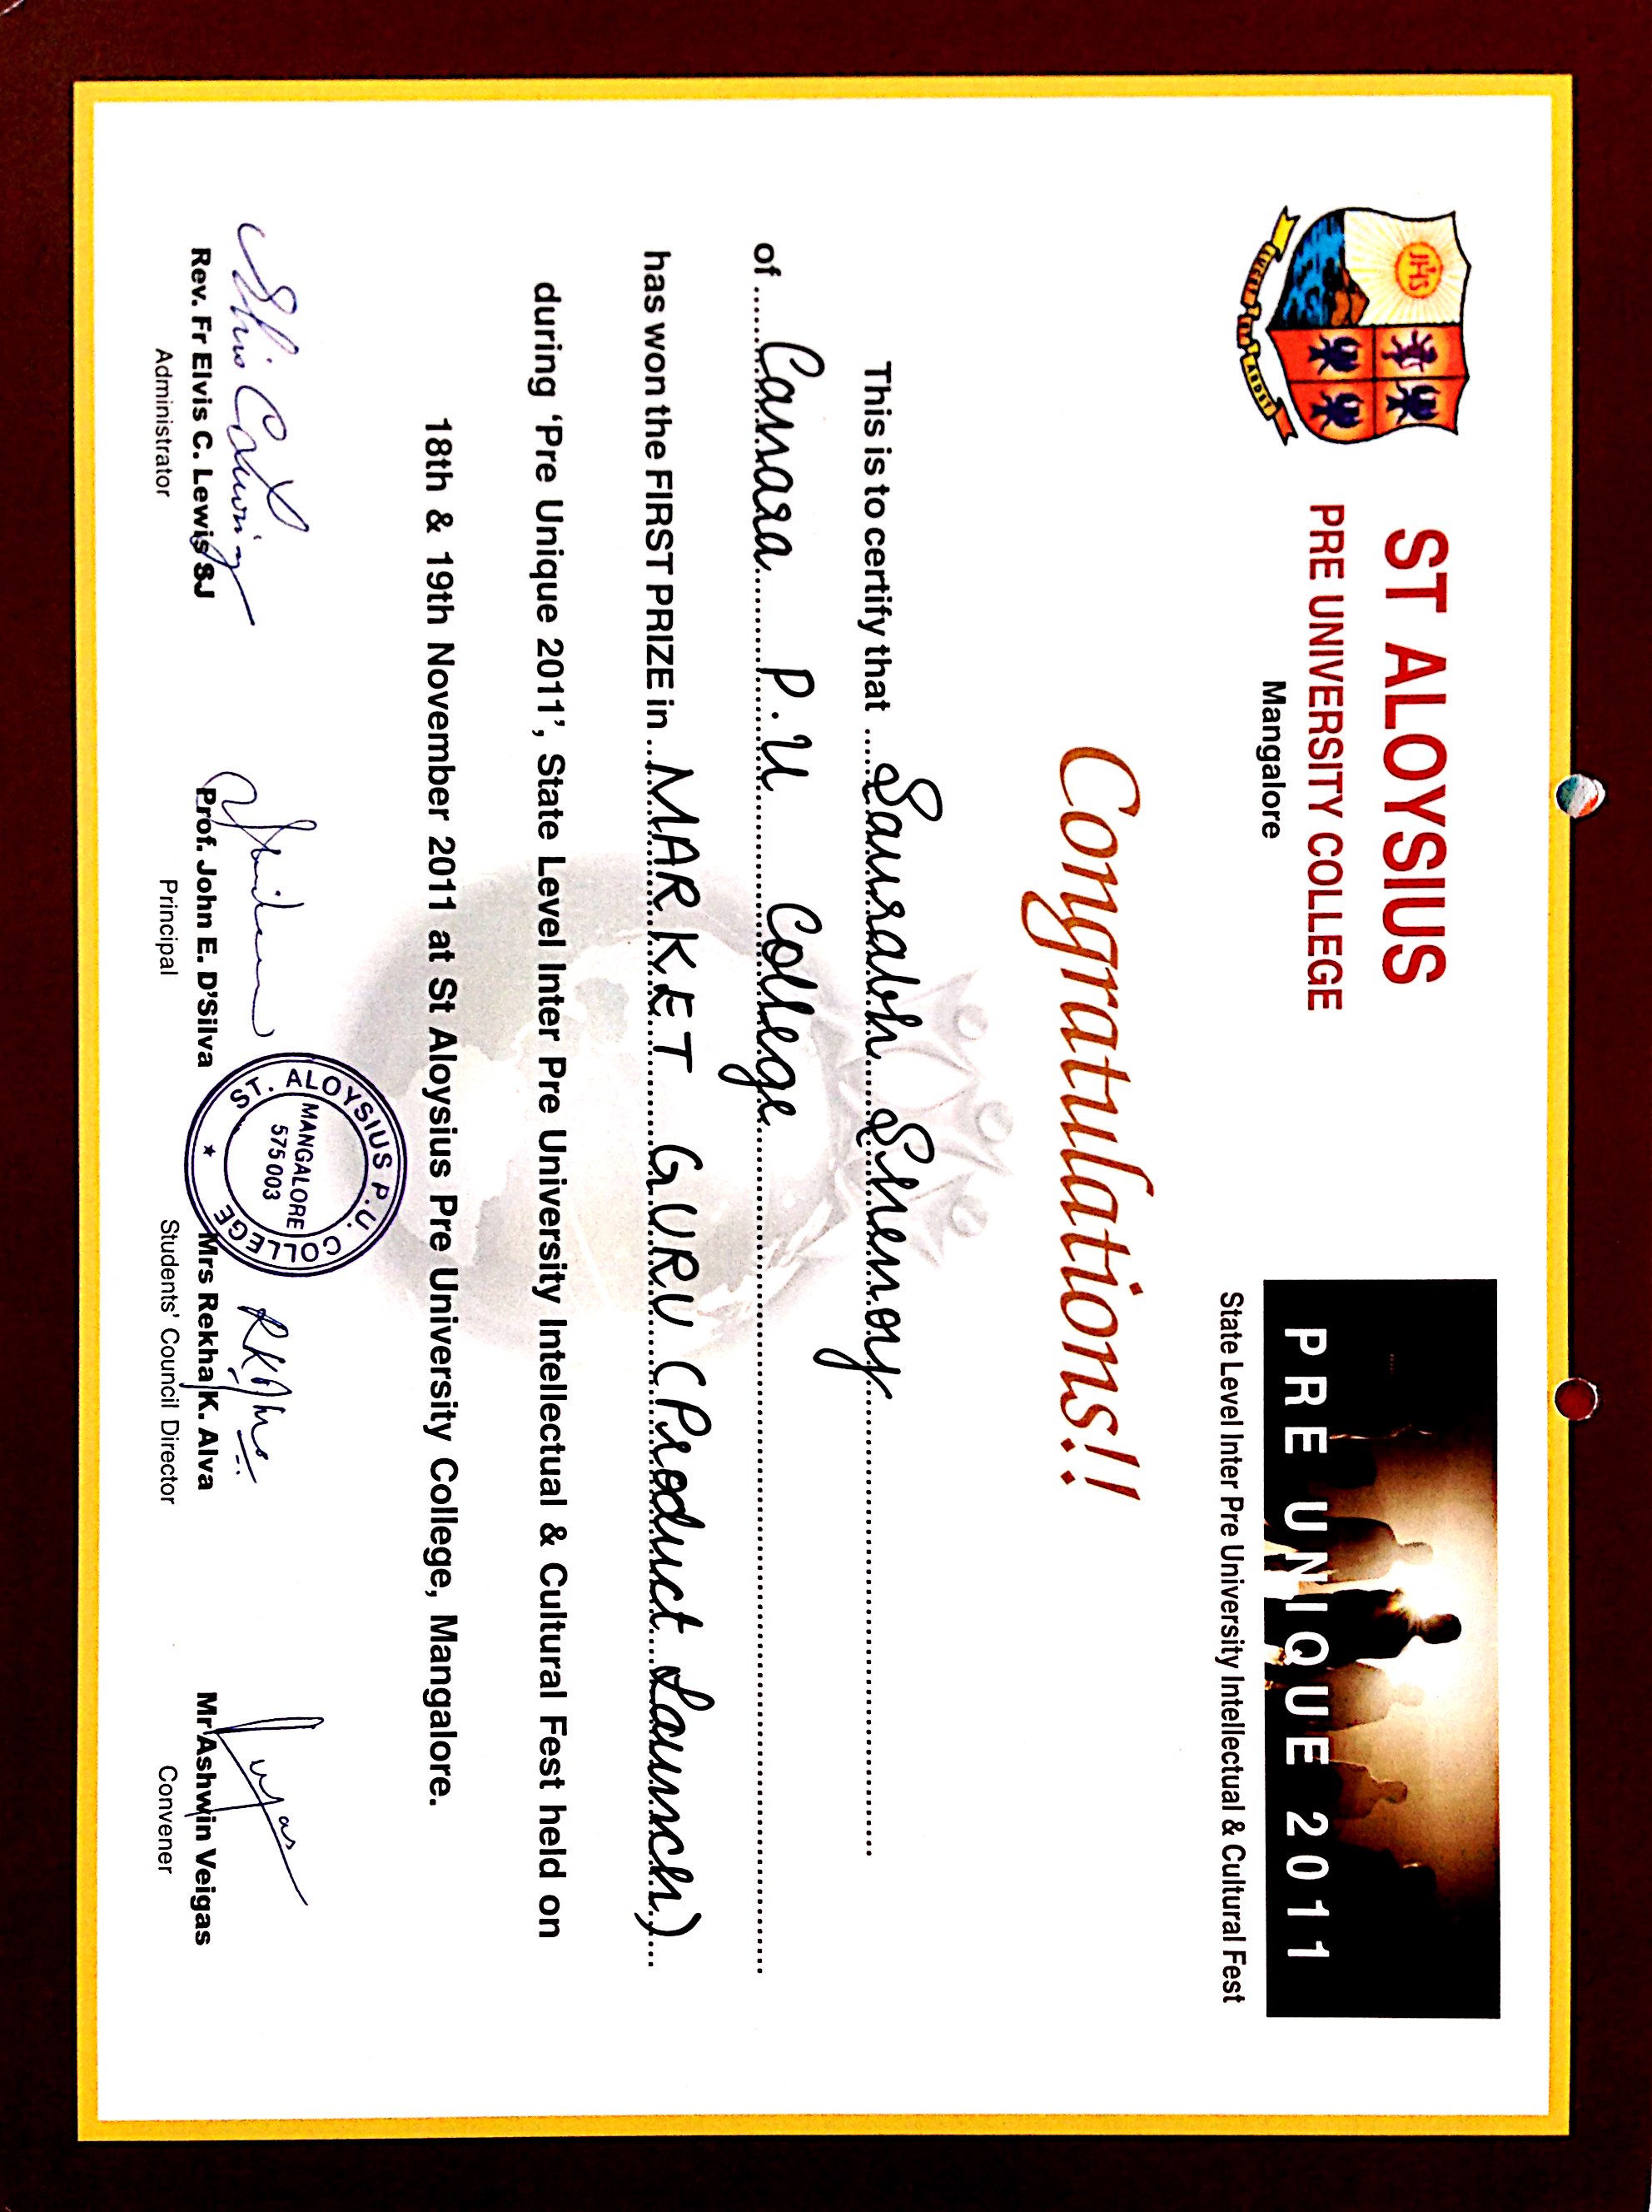 ST ALOYSIUS
PRE UNIVERSITY COLLEGE
Mangalore
JHS
LUCET ET ARDET
PRE UNIQUE 2011
State Level Inter Pre University Intellectual & Cultural Fest
Congratulations!!
This is to certify that Saurabh Shenoy
of Canara P.U College
has won the FIRST PRIZE in MARKET GURU (Product Launch)
during ‘Pre Unique 2011’, State Level Inter Pre University Intellectual & Cultural Fest held on
18th & 19th November 2011 at St Aloysius Pre University College, Mangalore.
ST. ALOYSIUS P.U. COLLEGE
MANGALORE
575 003
Rev. Fr Elvis C. Lewis SJ
Administrator
Prof. John E. D’Silva
Principal
Mrs Rekha K. Alva
Students’ Council Director
Mr Ashwin Veigas
Convener